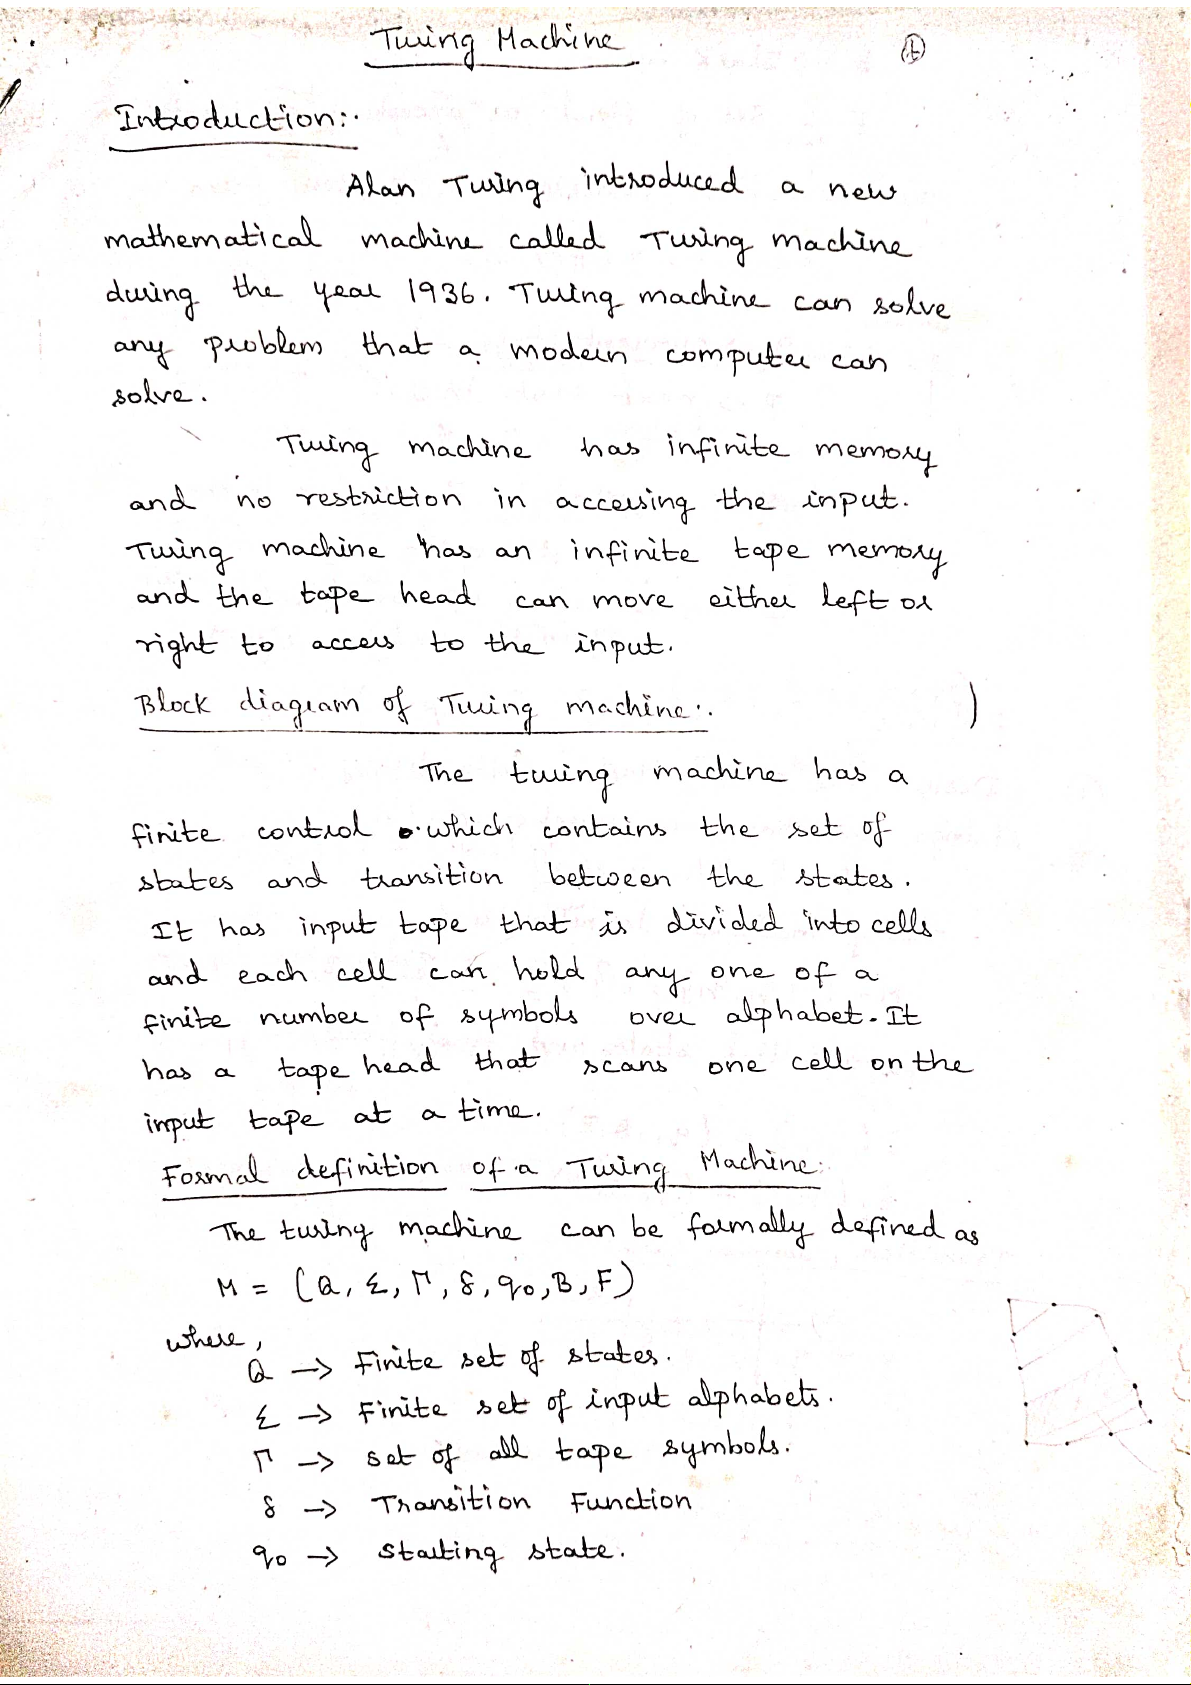 Turing Machine
Introduction:-
Alan Turing introduced a new
mathematical machine called Turing machine
during the year 1936. Turing machine can solve
any problem that a modern computer can
solve.
Turing machine has infinite memory
and no restriction in accessing the input.
Turing machine has an infinite tape memory
and the tape head can move either left or
right to access to the input.
Block diagram of Turing machine:-
The turing machine has a
finite control which contains the set of
states and transition between the states.
It has input tape that is divided into cells
and each cell can hold any one of a
finite number of symbols over alphabet. It
has a tape head that scans one cell on the
input tape at a time.
Formal definition of a Turing Machine:
The turing machine can be formally defined as
M = (Q, Σ, Γ, δ, q0, B, F)
where,
Q -> Finite set of states.
Σ -> Finite set of input alphabets.
Γ -> set of all tape symbols.
δ -> Transition Function
q0 -> Starting state.